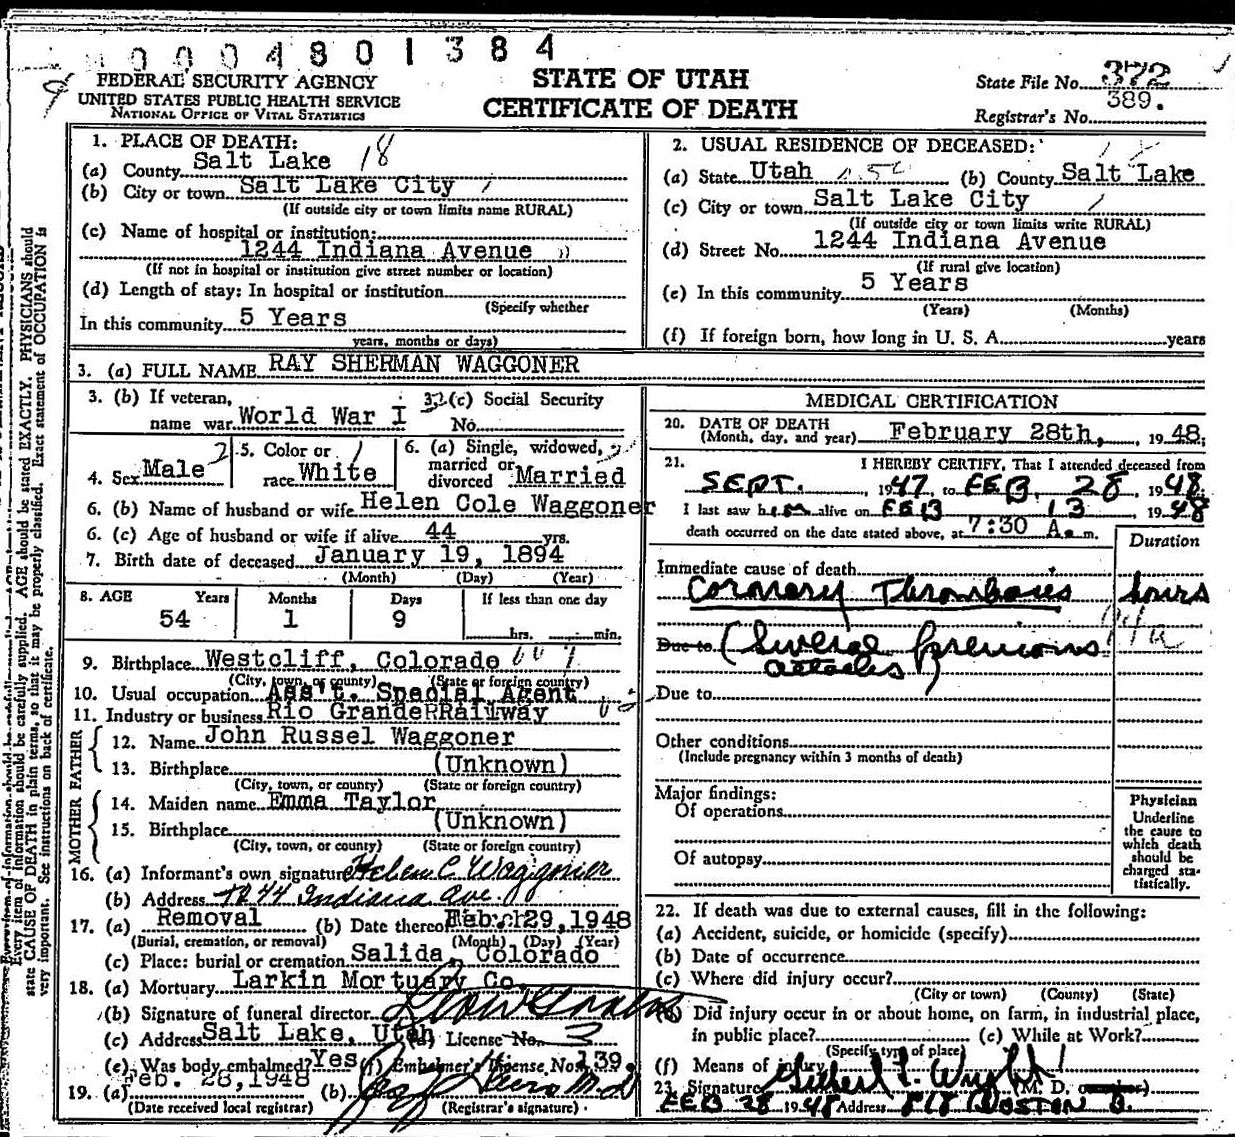 0004801384
FEDERAL SECURITY AGENCY
UNITED STATES PUBLIC HEALTH SERVICE
NATIONAL OFFICE OF VITAL STATISTICS
STATE OF UTAH
CERTIFICATE OF DEATH
State File No. 372
389.
Registrar's No.
1. PLACE OF DEATH:
(a) County Salt Lake 18
(b) City or town Salt Lake City
(If outside city or town limits name RURAL)
(c) Name of hospital or institution:
1244 Indiana Avenue
(If not in hospital or institution give street number or location)
(d) Length of stay: In hospital or institution
(Specify whether
In this community 5 Years
years, months or days)
2. USUAL RESIDENCE OF DECEASED:
(a) State Utah (b) County Salt Lake
(c) City or town Salt Lake City
(If outside city or town limits write RURAL)
(d) Street No. 1244 Indiana Avenue
(If rural give location)
(e) In this community 5 Years
(Years) (Months)
(f) If foreign born, how long in U. S. A. years
3. (a) FULL NAME RAY SHERMAN WAGGONER
3. (b) If veteran,
name war World War I
3. (c) Social Security
No.
4. Sex Male
5. Color or
race White
6. (a) Single, widowed,
married or
divorced Married
6. (b) Name of husband or wife Helen Cole Waggoner
6. (c) Age of husband or wife if alive 44 yrs.
7. Birth date of deceased January 19, 1894
(Month) (Day) (Year)
8. AGE Years Months Days If less than one day
54 1 9 hrs. min.
9. Birthplace Westcliff, Colorado
(City, town, or county) (State or foreign country)
10. Usual occupation Ass't. Special Agent
11. Industry or business Rio Grande RRailway
FATHER
12. Name John Russel Waggoner
13. Birthplace (Unknown)
(City, town, or county) (State or foreign country)
MOTHER
14. Maiden name Emma Taylor
15. Birthplace (Unknown)
(City, town, or county) (State or foreign country)
16. (a) Informant's own signature Helen C Waggoner
(b) Address 1244 Indiana Ave.
17. (a) Removal (b) Date thereof Feb. 29, 1948
(Burial, cremation, or removal) (Month) (Day) (Year)
(c) Place: burial or cremation Salida, Colorado
18. (a) Mortuary Larkin Mortuary Co.
(b) Signature of funeral director
(c) Address Salt Lake, Utah (d) License No. 3
(e) Was body embalmed? Yes (f) Embalmer's License No. 139.
19. (a) Feb. 28, 1948 (b)
(Date received local registrar) (Registrar's signature)
MEDICAL CERTIFICATION
20. DATE OF DEATH
(Month, day, and year) February 28th, 1948.
21. I HEREBY CERTIFY, That I attended deceased from
SEPT. 1947 to FEB. 28, 1948.
I last saw him alive on FEB 13 1948
death occurred on the date stated above, at 7:30 A. m.
Duration
Immediate cause of death
Coronary Thrombosis hours
Due to (Several previous
attacks)
Due to
Other conditions
(Include pregnancy within 3 months of death)
Major findings:
Of operations
Of autopsy
Physician
Underline
the cause to
which death
should be
charged sta-
tistically.
22. If death was due to external causes, fill in the following:
(a) Accident, suicide, or homicide (specify)
(b) Date of occurrence
(c) Where did injury occur?
(City or town) (County) (State)
(d) Did injury occur in or about home, on farm, in industrial place,
in public place? (e) While at Work?
(Specify type of place)
(f) Means of injury
23. Signature Gilbert L. Wright (M. D. or other)
FEB 28 1948 Address 818 BOSTON B.
Every item of information should be carefully supplied. AGE should be stated EXACTLY. PHYSICIANS should
state CAUSE OF DEATH in plain terms, so that it may be properly classified. Exact statement of OCCUPATION is
very important. See instructions on back of certificate.